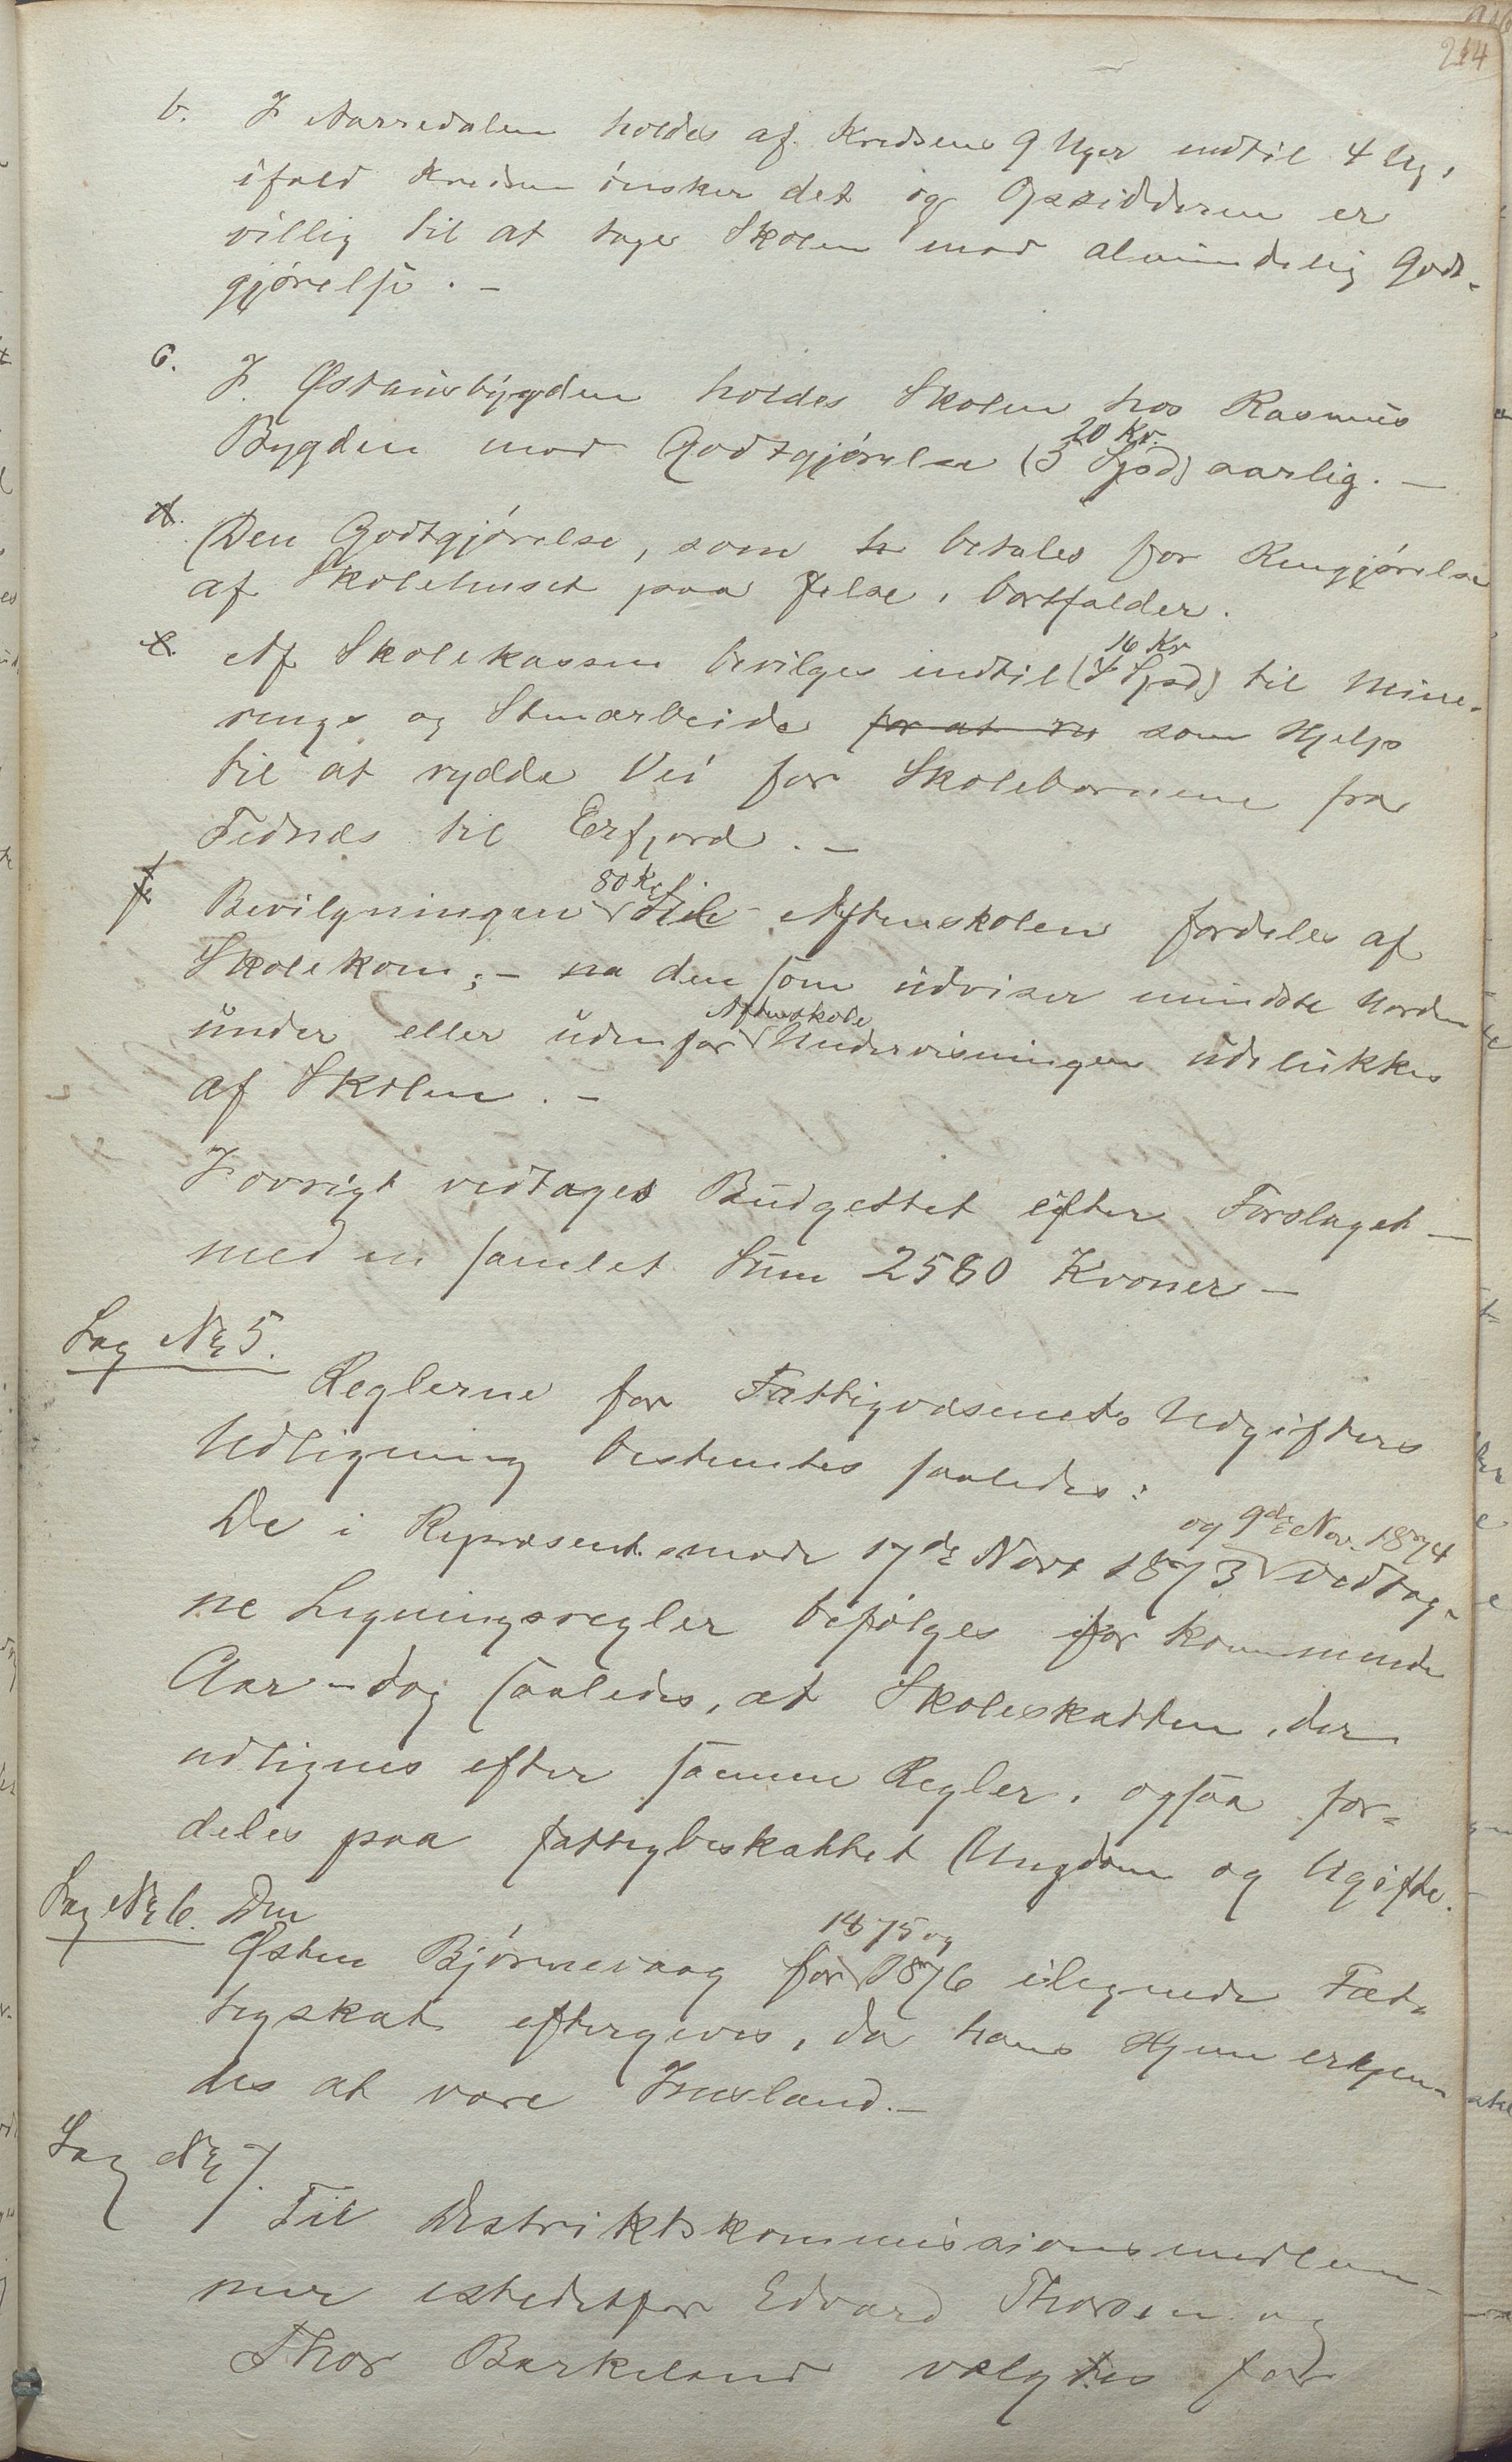 214
b. I Aarsedalen holdes af Kredsens 9 Uger indtil 4 Ug,
ifald Kredsen ønsker det og Opsidderen er
villig til at tage Skolen mod almindelig Godt-
gjørelse. -
c. I Østainsbygden holdes Skolen hos Rasmus
20 Kr.
Bygden mod Godtgjørelse (5 Spd) aarlig. -
d. Den Godtgjørelse, som betales for Rengjørelse
af Skolehuset paa Jelse, bortfalder.
16 Kr
e. Af Skolekassen bevilges indtil (4 Spd) til Mine-
rings og Stenarbeide for at som Hjelp
til at rydde Vei for Skolebørnene fra
Tednæs til Erfjord. -
80 Kr
f Bevilgningen til Aftenskolen fordeles af
Skolekom; - den som udviser mindste Uorden
Aftenskole
under eller udenfor Undervisningen udelukkes
af Skolen. -
Iøvrigt vedtages Budgettet efter Forslaget -
med en samlet Sum 2580 Kroner -
Sag No 5.
Reglerne for Fattigvæsenets Udgifters
Udligning bestemtes saaledes:
og 9de Nov. 1874
De i Repræsentsmøde 17de Novr 1873 vedtag-
ne Ligningsregler befølges for kommende
Aar - dog saaledes, at Skoleskatten, der
udlignes efter samme Regler, ogsaa for-
deles paa fattigbeskattet Ungdom og Ugifte.
Sag No 6. Den
1875 og
Østen Bjørnevaag for 1876 ilignede Fat-
tigskat eftergives, da hans Hjem erkjen-
des at være Imsland. -
Sag No 7.
Til Distriktskommissionsmedlem-
mer istedetfor Edvard Thorsen og
Thor Barkeland valgtes for